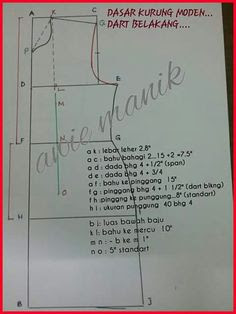 DASAR KURUNG MODEN...
DART BELAKANG....
A
K
C
G
P
D
L
E
M
F
N
G
O
H
I
B
J
awie manik
a k : lebar leher 2.8"
a c : bahu bahagi 2...15 ÷2 =7.5"
a d : dada bhg 4 +1/2"
d e : dada bhg 4 + 3/4
a f : bahu ke pinggang 15"
f g : pinggang bhg 4 + 1 1/2" (dart blkng)
f h : pinggng ke punggung...8" (standart)
h i : ukuran punggung 40 bhg 4
b j: luas bawah baju
k l: bahu ke mercu 10"
m n : - b ke m 1"
n o : 5" standart